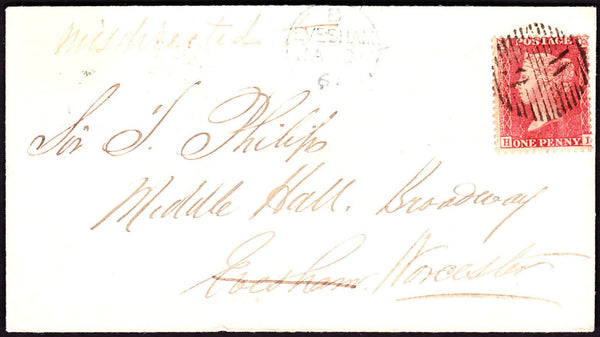 misdirected
EVESHAM
POSTAGE
H ONE PENNY
Sir T. Philips
Middle Hall. Broadway
Evesham Worcester